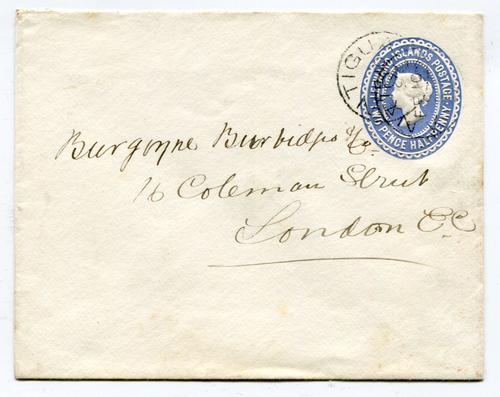 ISLANDS POSTAGE
TWO PENCE HALFPENNY
ANTIGUA
Burgoyne Burbidges & Co.
16 Coleman Street
London E.C.